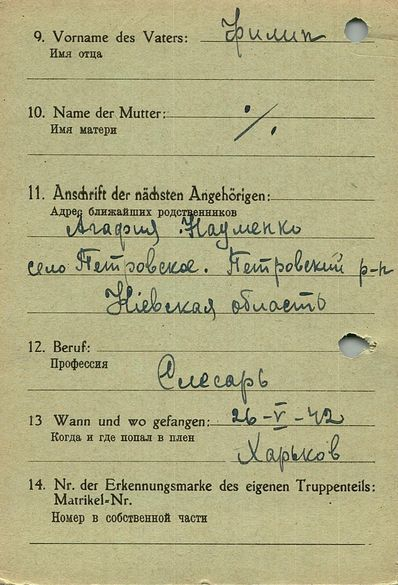 9. Vorname des Vaters: Филип
Имя отца
10. Name der Mutter: ·/.
Имя матери
11. Anschrift der nächsten Angehörigen:
Адрес ближайших родственников
Агафия Науменко
село Петровское. Петровский р-н
Кіевская область
12. Beruf:
Профессия
Слесарь
13 Wann und wo gefangen: 26-V-42
Когда и где попал в плен
Харьков
14. Nr. der Erkennungsmarke des eigenen Truppenteils:
Matrikel-Nr.
Номер в собственной части